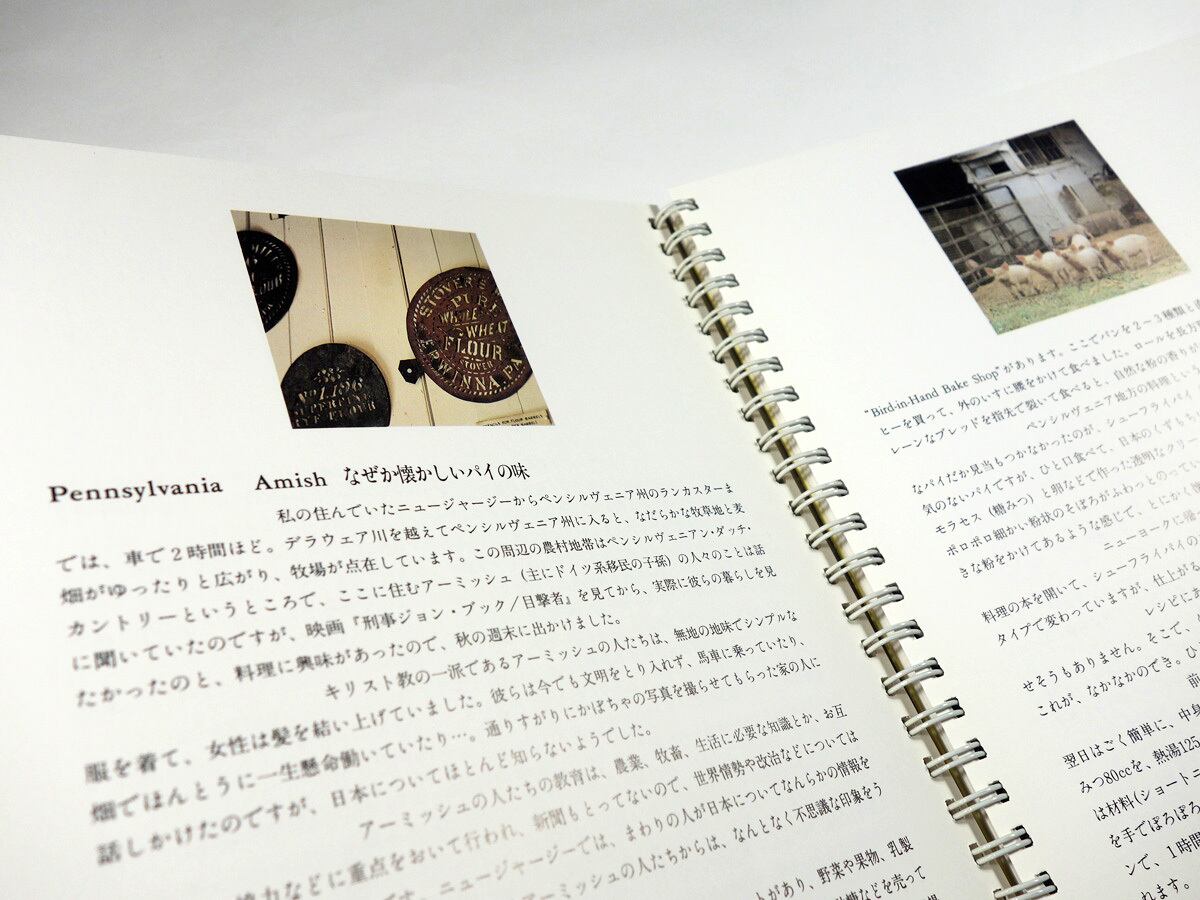 STOVER'S
PURE
WHOLE
WHEAT
FLOUR
STOVER
ERWINNA, PA
FLOUR
No 1796
SUPERFINE
RYE FLOUR
Pennsylvania Amish なぜか懐かしいパイの味
私の住んでいたニュージャージーからペンシルヴェニア州のランカスターま
では、車で2時間ほど。デラウェア川を越えてペンシルヴェニア州に入ると、なだらかな牧草地と麦
畑がゆったりと広がり、牧場が点在しています。この周辺の農村地帯はペンシルヴェニアン・ダッチ・
カントリーというところで、ここに住むアーミッシュ（主にドイツ系移民の子孫）の人々のことは話
に聞いていたのですが、映画『刑事ジョン・ブック／目撃者』を見てから、実際に彼らの暮らしを見
たかったのと、料理に興味があったので、秋の週末に出かけました。
キリスト教の一派であるアーミッシュの人たちは、無地の地味でシンプルな
服を着て、女性は髪を結い上げていました。彼らは今でも文明をとり入れず、馬車に乗っていたり、
畑でほんとうに一生懸命働いていたり…。通りすがりにかぼちゃの写真を撮らせてもらった家の人に
話しかけたのですが、日本についてはほとんど知らないようでした。
アーミッシュの人たちの教育は、農業、牧畜、生活に必要な知識とか、お互
協力などに重点をおいて行われ、新聞もとってないので、世界情勢や政治などについては
です。ニュージャージーでは、まわりの人が日本についてなんらかの情報を
アーミッシュの人たちからは、なんとなく不思議な印象をう
とがあり、野菜や果物、乳製
などを売って
"Bird-in-Hand Bake Shop"があります。ここでパンを2～3種類と
ヒーを買って、外のいすに腰をかけて食べました。ロールを長方
レーンなブレッドを指先で裂いて食べると、自然な粉の香りが
ペンシルヴェニア地方の料理とい
なパイだか見当もつかなかったのが、シューフライパイ
気のないパイですが、ひと口食べて、日本のくずもち
モラセス（糖みつ）と卵などで作った透明なクリー
ポロポロ細かい粉状のそぼろがふわっとのって
きな粉をかけてあるような感じで、とにかく懐
ニューヨークに帰
料理の本を開いて、シューフライパイの
タイプで変わっていますが、仕上がる
レシピにあ
せそうもありません。そこで、
これが、なかなかのでき。ひ
前
翌日はごく簡単に、中身
みつ80ccを、熱湯125
は材料(ショートニ
を手でぼろぼろ
ンで、1時間
れます。